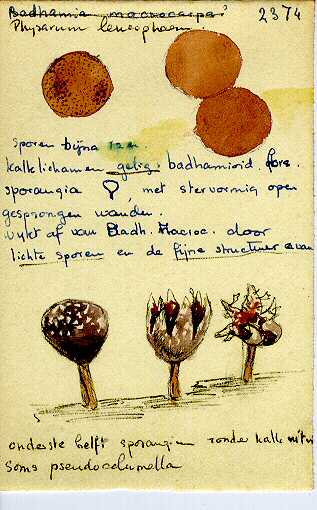 Badhamia macrocarpa 2374
Physarum leucophaeum
sporen bijna
kalklichamen gelig. badhamioid.
sporangia met stervormig open
gesprongen wanden.
wykt af van Badh. Macroc. door
lichte sporen en de fijne structuur
onderste helft sporangien zonder kalk
Soms pseudocolumella